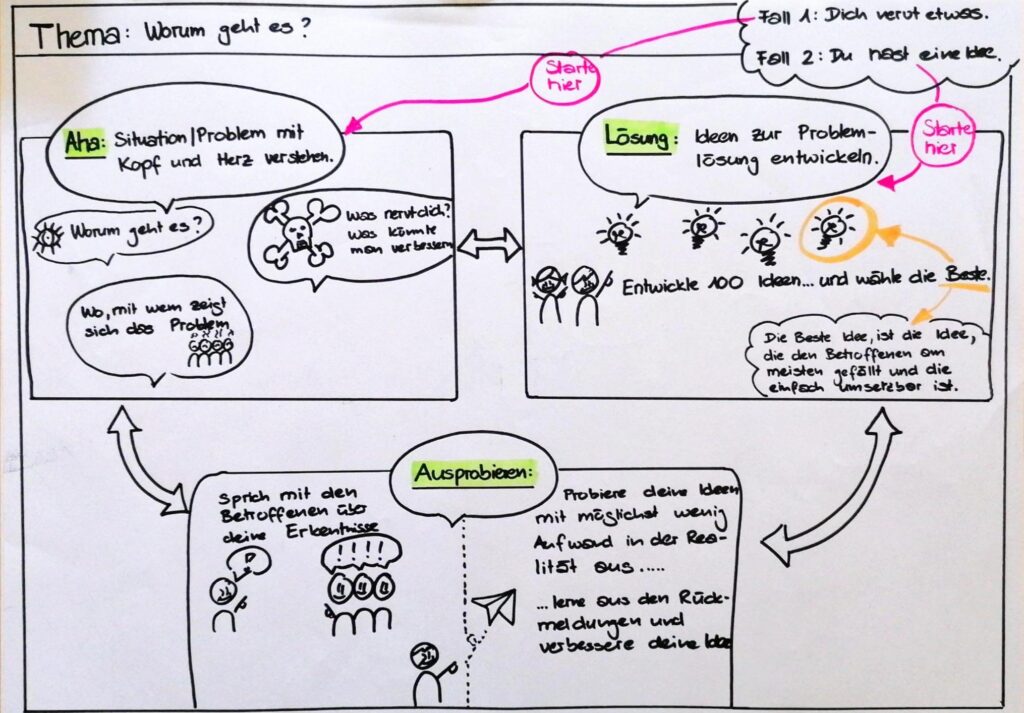 Thema: Worum geht es?
Fall 1: Dich nervt etwas.
Fall 2: Du hast eine Idee.
Starte
hier
Starte
hier
Aha: Situation/Problem mit
Kopf und Herz verstehen.
Worum geht es?
Was nervt dich?
Was könnte
man verbessern
Wo, mit wem zeigt
sich das Problem
Lösung: Ideen zur Problem-
lösung entwickeln.
Entwickle 100 Ideen... und wähle die Beste.
Die Beste Idee, ist die Idee,
die den Betroffenen am
meisten gefällt und die
einfach umsetzbar ist.
Ausprobieren:
Sprich mit den
Betroffenen über
deine Erkentnisse
!!!!
Probiere deine Ideen
mit möglichst wenig
Aufwand in der Rea-
lität aus.....
...lerne aus den Rück-
meldungen und
verbessere deine Idee